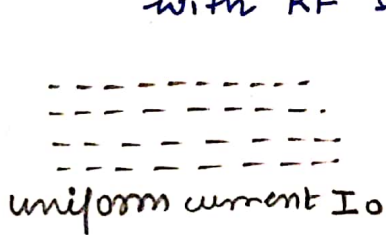 with RF s
uniform current Io